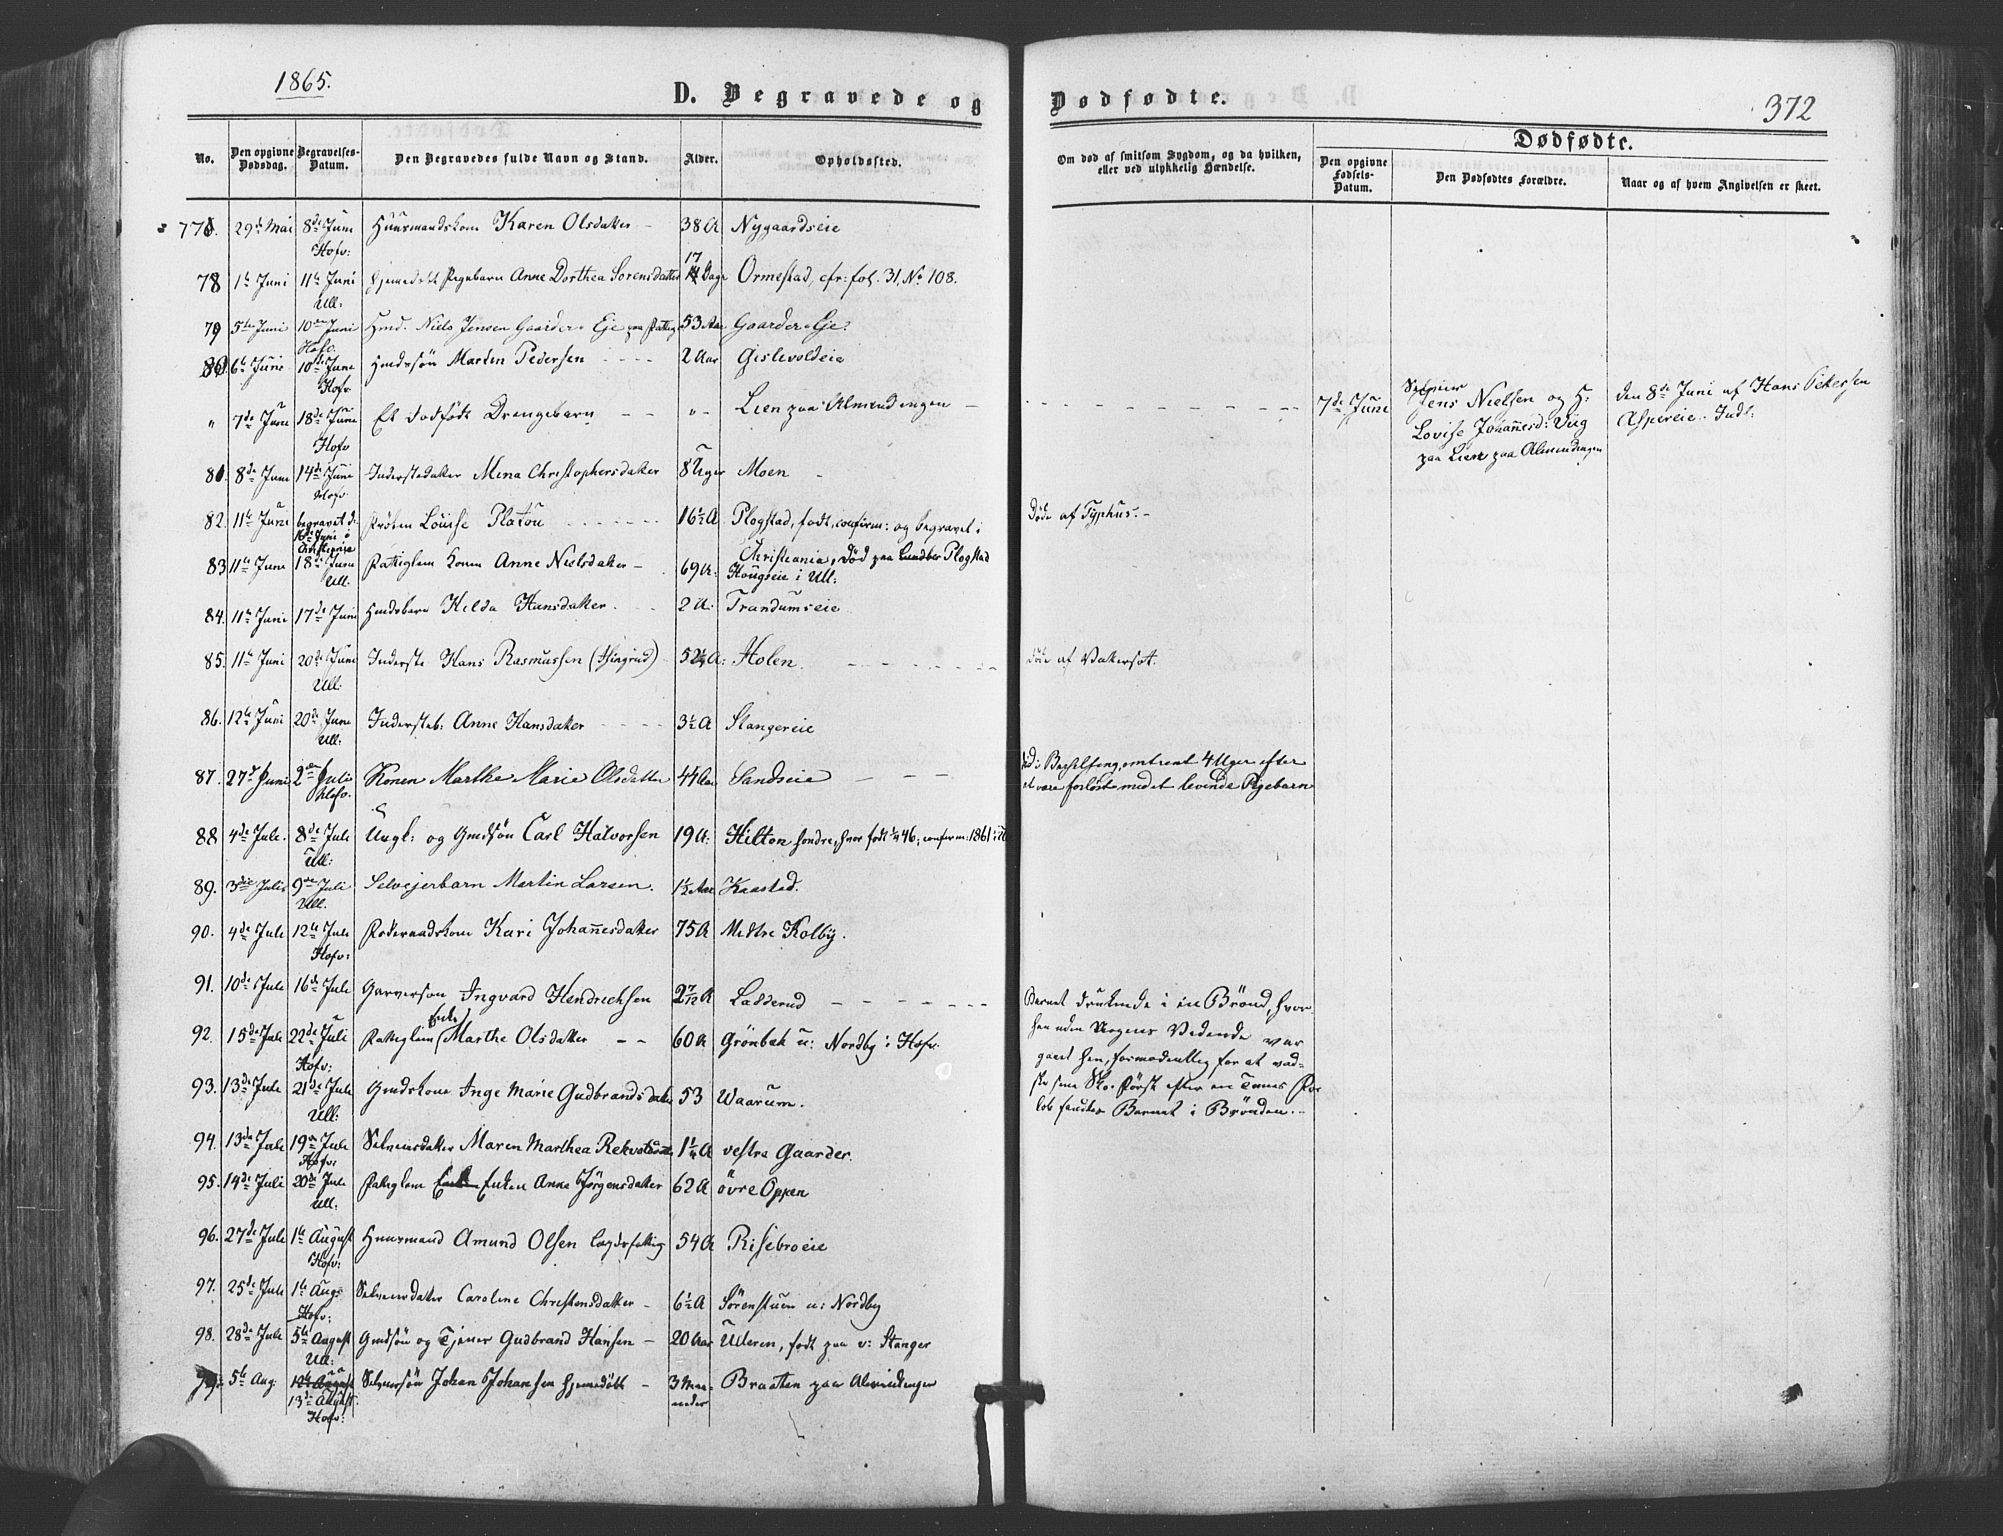 1865.
D. Begravede og Dødfødte.
372
Dødfødte.
No.
Den opgivne Dødsdag.
Begravelses-Datum.
Den Begravedes fulde Navn og Stand.
Alder.
Opholdssted.
Om død af smitsom Sygdom, og da hvilken, eller ved ulykkelig Hændelse.
Den opgivne Fødsels-Datum.
Den Dødfødtes Forældre.
Naar og af hvem Angivelsen er skeet.
77. 29de Mai 8de Juni Huusmandskone Karen Olsdatter 38 A Nygaardseie
Hofv:
78 1te Juni 11te Juni hjemedøbt Pigebarn Anne Dorthea Sorensdatter 17 Dage Ormestad, cfr: fol. 31, No 108.
Ull:
79 5te Juni 10de Juni Hmd. Niels Jensen Gaarder Eje 53 Aar Gaarder-Eje.
Hofv.
80 6te Juni 10de Juni Hmdssön Martin Pedersen 2 Aar Gislevoldeie
Hofv
" 7de Juni 18de Juni Et dødfödt Drengebarn " Lien paa Almendingen
Hofv
7de Juni
Selveier
Jens Nielsen og H:
Lovise Johannesd: Viig
paa Lien paa Almendingen
den 8de Juni af Hans Petersen
Aspereie. Inds:
81 8de Juni 14de Juni Inderstedatter Mina Christophersdatter 8 Uger Moen
Hofv.
82. 11te Juni begravet d: Frøken Louise Platou 16½ A Plogstad, født, confirm: og begravet i
16de Juni i
Christiania
Christiania, død paa Plogstad
Døde af Typhus.
83 11te Juni 18de Juni Fattiglem Konen Anne Nielsdatter 69 A. Hougseie i Ull:
Ull:
84. 11te Juni 17de Juni Hmdsbarn Hilda Hansdatter. 2 A: Trandumseie
85. 11te Juni 20de Juni Inderste Hans Rasmussen 52½ A: Holen.
Ull:
Døde af Vatersot.
86. 12te Juni 20de Juni Indersteb: Anne Hansdatter 3½ A Stangereie
Ull:
87. 27de Juni 2den Juli Konen Marthe Marie Olsdatter 44 Aar Sandseie
Hofv.
Barselseng, omtrent 4 Uger efter
at være forløst med et levende Pigebarn
88 4de Juli. 8de Juli Ungk: og Gmdsön Carl Halvorsen 19 A: Hilton søndre, hvor født 46; confirm: 1861
Ull:
89. 3die Julis 9de Juli Selvejerbarn Martin Larsen. 1½ Aar Kaastad.
Ull.
90. 4de Juli 12te Juli Kari Johannesdatter 75 A Mellre Kolby.
Hofv:
91. 10de Juli 16de Juli Garversøn Ingvard Hendrichsen 2 7/12 A Ladderud
Barnet druknede i en Brønd, hvor
hen uden Nogens Vidende var
gaaet hen, formodentlig for at vad-
ske sine Sko. Først efter en Times For-
løb fandtes Barnet i Brønden.
92. 15de Juli 22de Juli Fattiglem Enke Marthe Olsdatter 60 A Grönbæk u: Nordby i Hofv.
Hofv:
93. 13de Juli 21de Juli Gmdskone Inge Marie Gudbrandsdatter 53 Waarum.
Ull:
94. 13de Juli 19de Juli Selveiersdatter Maren Marthea 1¼ A vestre Gaarder.
Hofv:
95. 14de Juli 20de Juli Fattiglem Enken Anne Jörgensdatter 62 A övre Oppen
Ull:
96. 27de Juli 1te August Huusmand Amund Olsen lægdsfattig 54 A Risebroeie
Hofv:
97. 25de Juli 1te Aug: Selveiersdatter Caroline Christensdatter 6½ A Sörenstuen u: Nordby
Hofv:
98. 28de Juli 5te August Gmdsön og Tjener Gudbrand Hansen 20 Aar Ulleren, født paa v: Stanger
Ull:
5te Aug. 12te August Selveiersön Johan Johansen hjemedöbt 3 Maa- Braaten paa Almindingen
13de August
neder
Hofv: